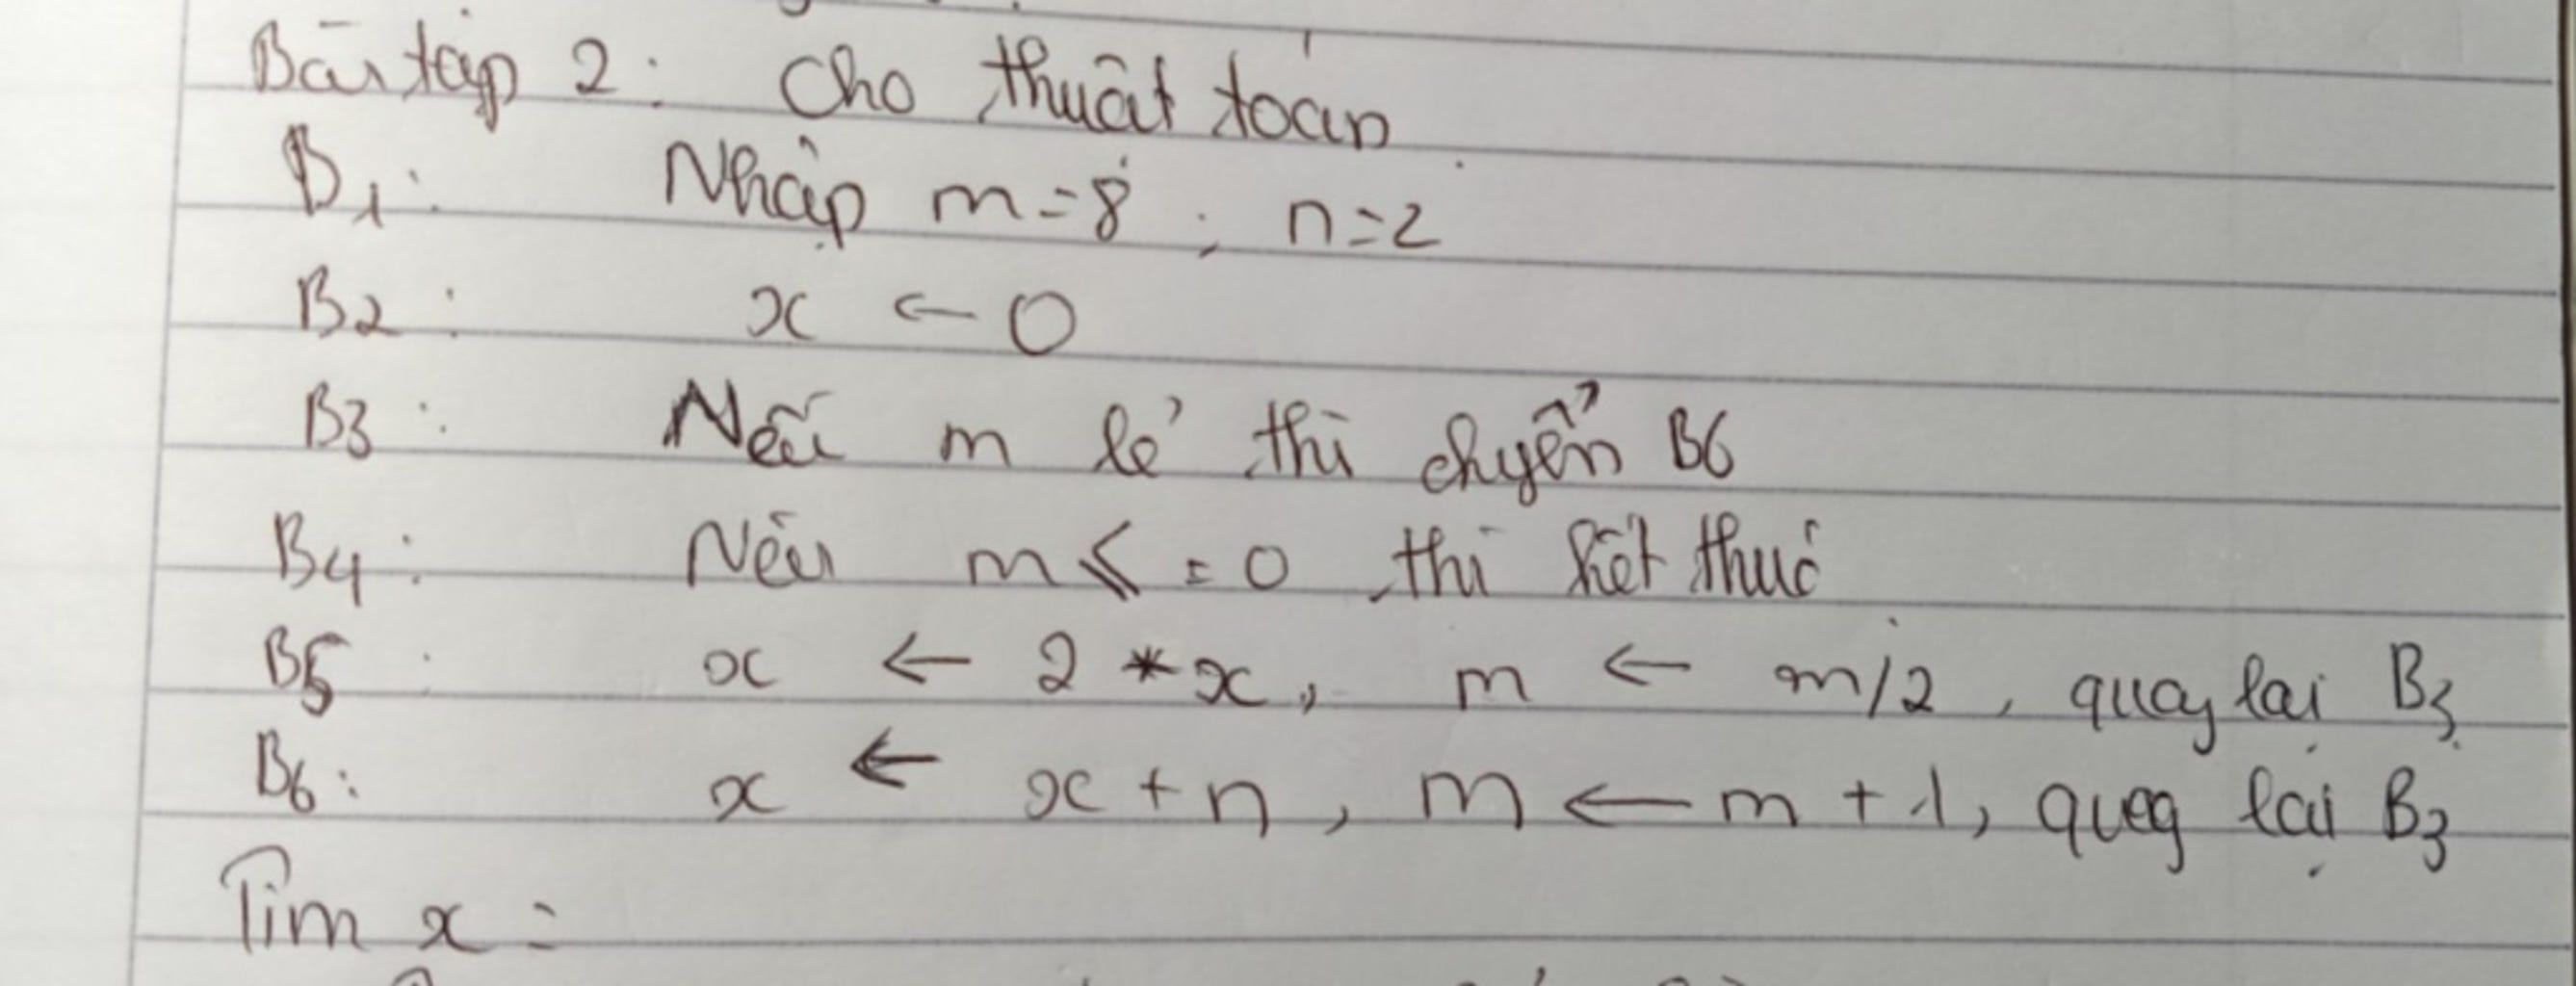 Bài tập 2: Cho thuật toán
B1: Nhập m=8; n=2
B2: x ← 0
B3: Nếu m lẻ thì chyển B6
B4: Nếu m ≤ = 0 thì kết thúc
B5: x ← 2 * x, m ← m/2, quay lại B3
B6: x ← x + n, m ← m + 1, quay lại B3
Tìm x =